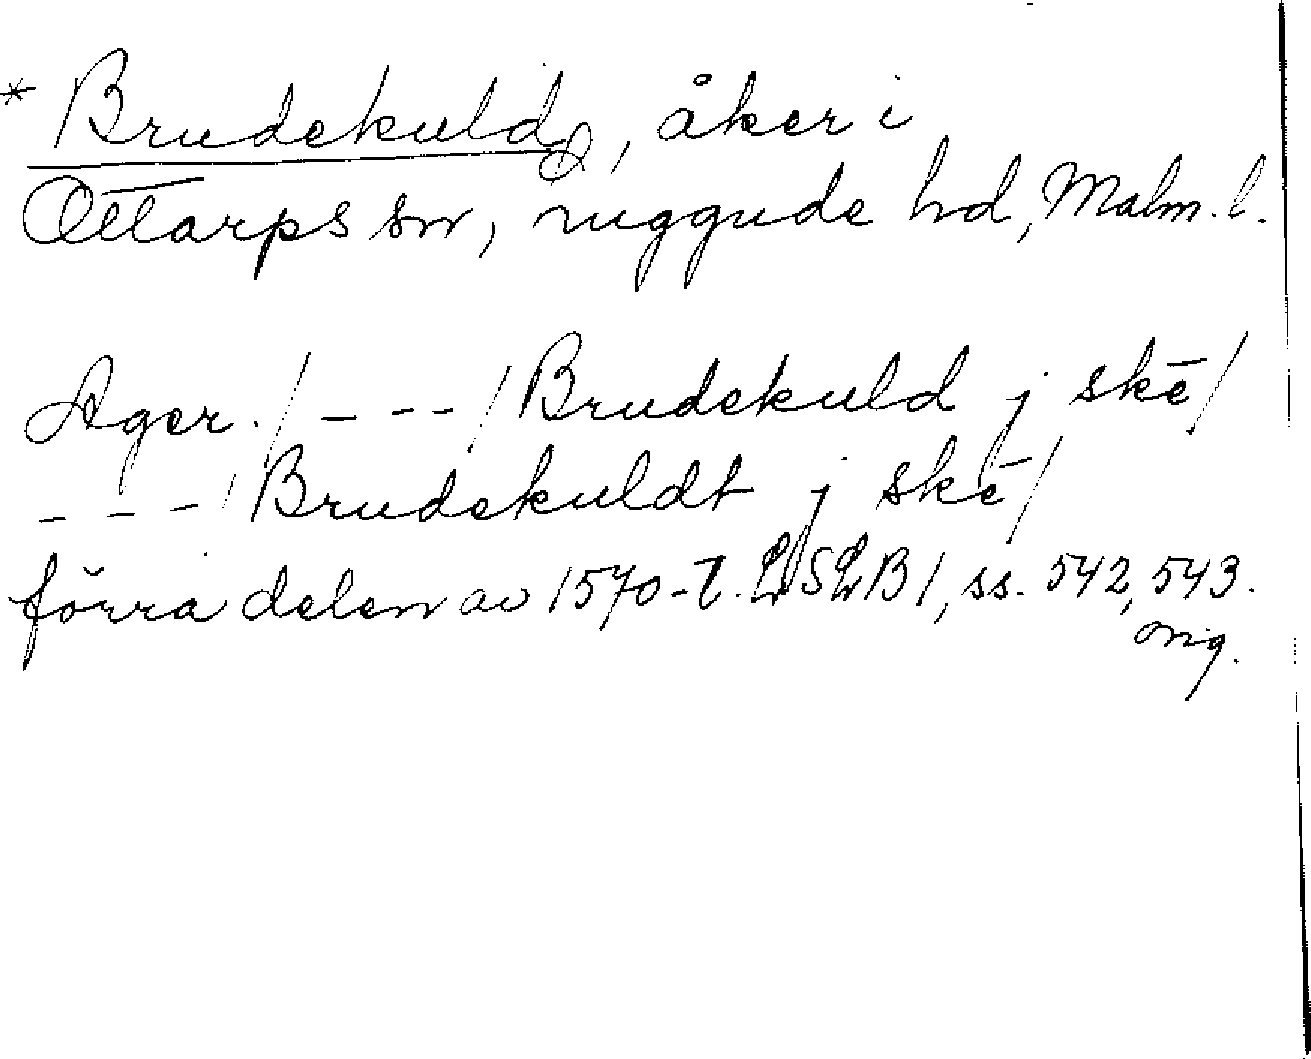 * Brudekuld, åker i
Ottarps sn, Luggude hd, Malm. l.
Ager. / - - - / Brudekuld j skē /
- - - / Brudekuldt j skē /
förra delen av 1570-t. LSLB 1, ss. 542, 543.
orig.